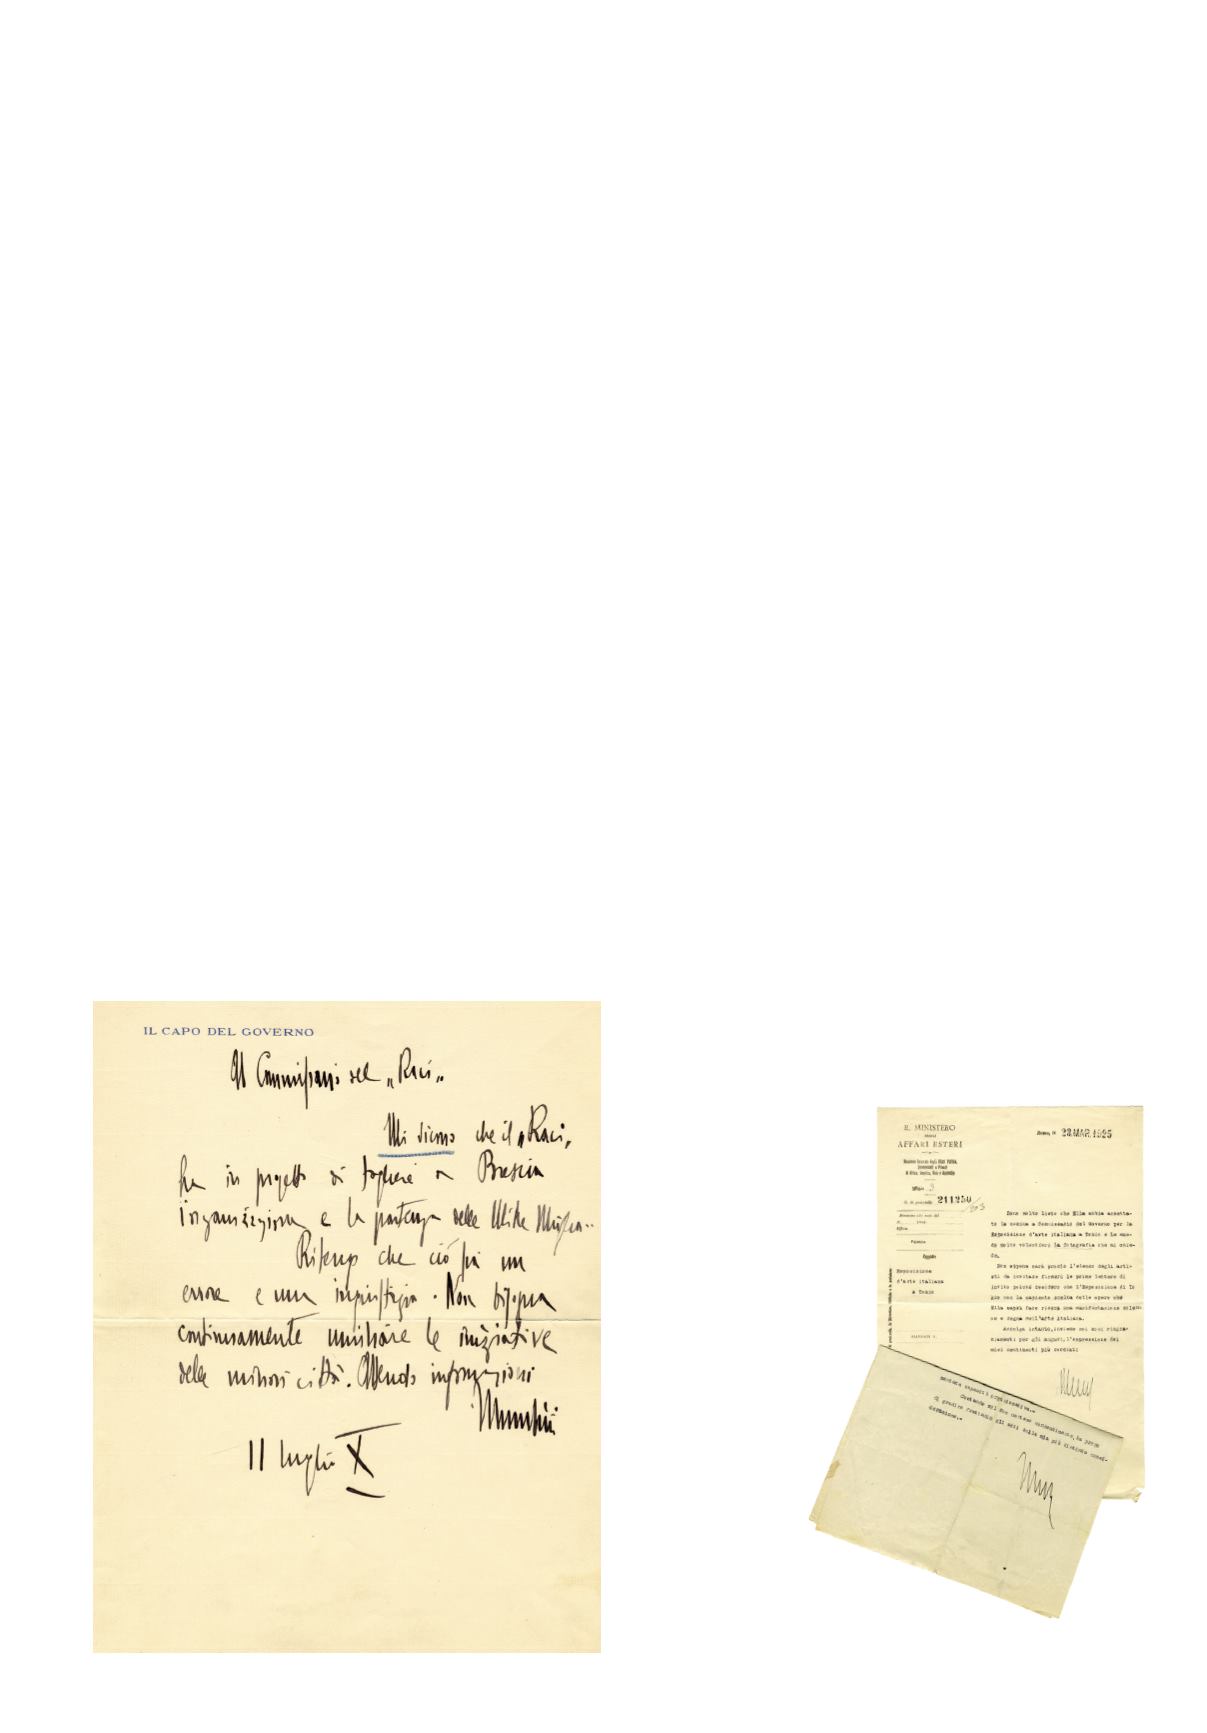 IL CAPO DEL GOVERNO
Al Commissario del „Raci„
Mi dicono che il „Raci„
ha in progetto di togliere a Brescia
l'organizzazione e la partenza delle Mille Miglia..
Ritengo che ciò sia un
errore e una ingiustizia. Non bisogna
continuamente umiliare le iniziative
delle minori città. Attendo informazioni
Mussolini
11 luglio X
IL MINISTERO
DEGLI
AFFARI ESTERI
Roma, li 28.MAR.1925
Ufficio 3
N. di protocollo 211250
Oggetto
Esposizione
d'arte italiana
a Tokio
Sono molto lieto che Ella abbia accetta-
to la nomina a Commissario del Governo per la
Esposizione d'arte italiana a Tokio e Le man-
do molto volentieri la fotografia che mi chie-
de.
Non appena sarà pronto l'elenco degli arti-
sti da invitare firmerò le prime lettere di
invito poichè desidero che l'Esposizione di To
kio con la sapiente scelta delle opere che
Ella saprà fare riesca una manifestazione solen
ne e degna dell'arte italiana.
Accolga intanto, insieme coi miei ringra-
ziamenti per gli auguri, l'espressione dei
miei sentimenti più cordiali
di gradire frattanto gli atti della mia più distinta consi-
derazione.-